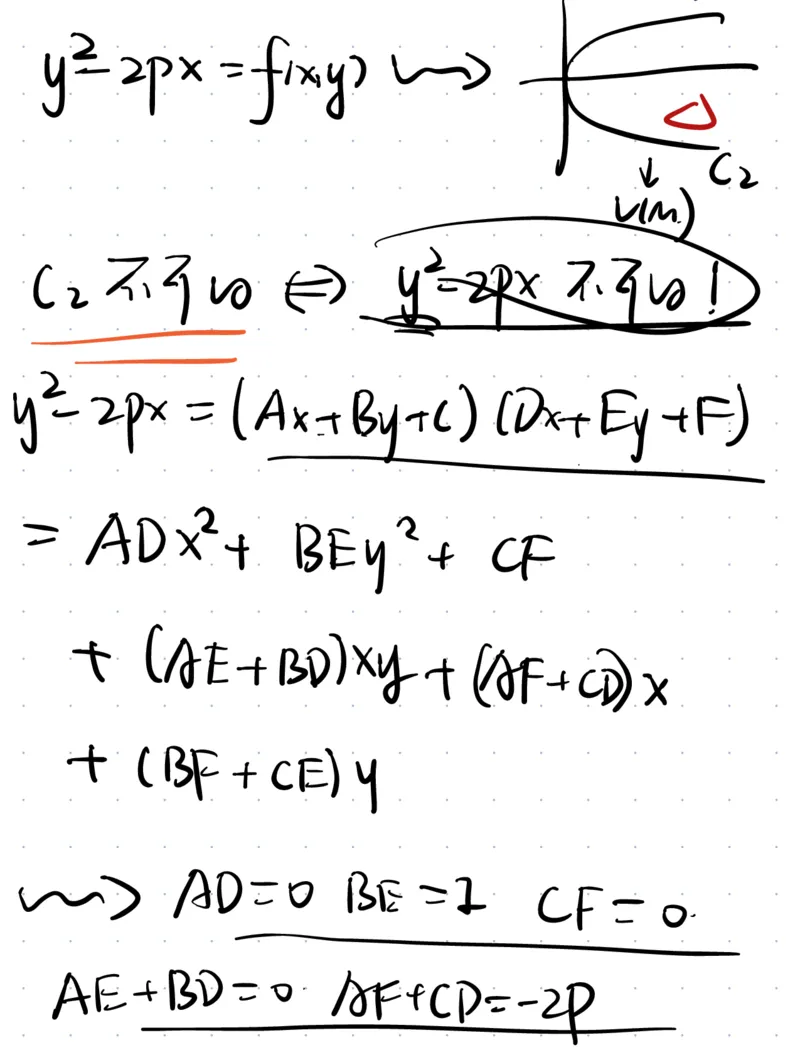 y²-2px=f(x,y) ⇝
C₂
↓
V(M)
C₂ 不可约 ⇔ y²-2px 不可约!
y²-2px=(Ax+By+C)(Dx+Ey+F)
= ADx²+ BEy²+ CF
+ (AE+BD)xy+(AF+CD)x
+ (BF+CE)y
⇝ AD=0 BE=1 CF=0
AE+BD=0 AF+CD=-2p